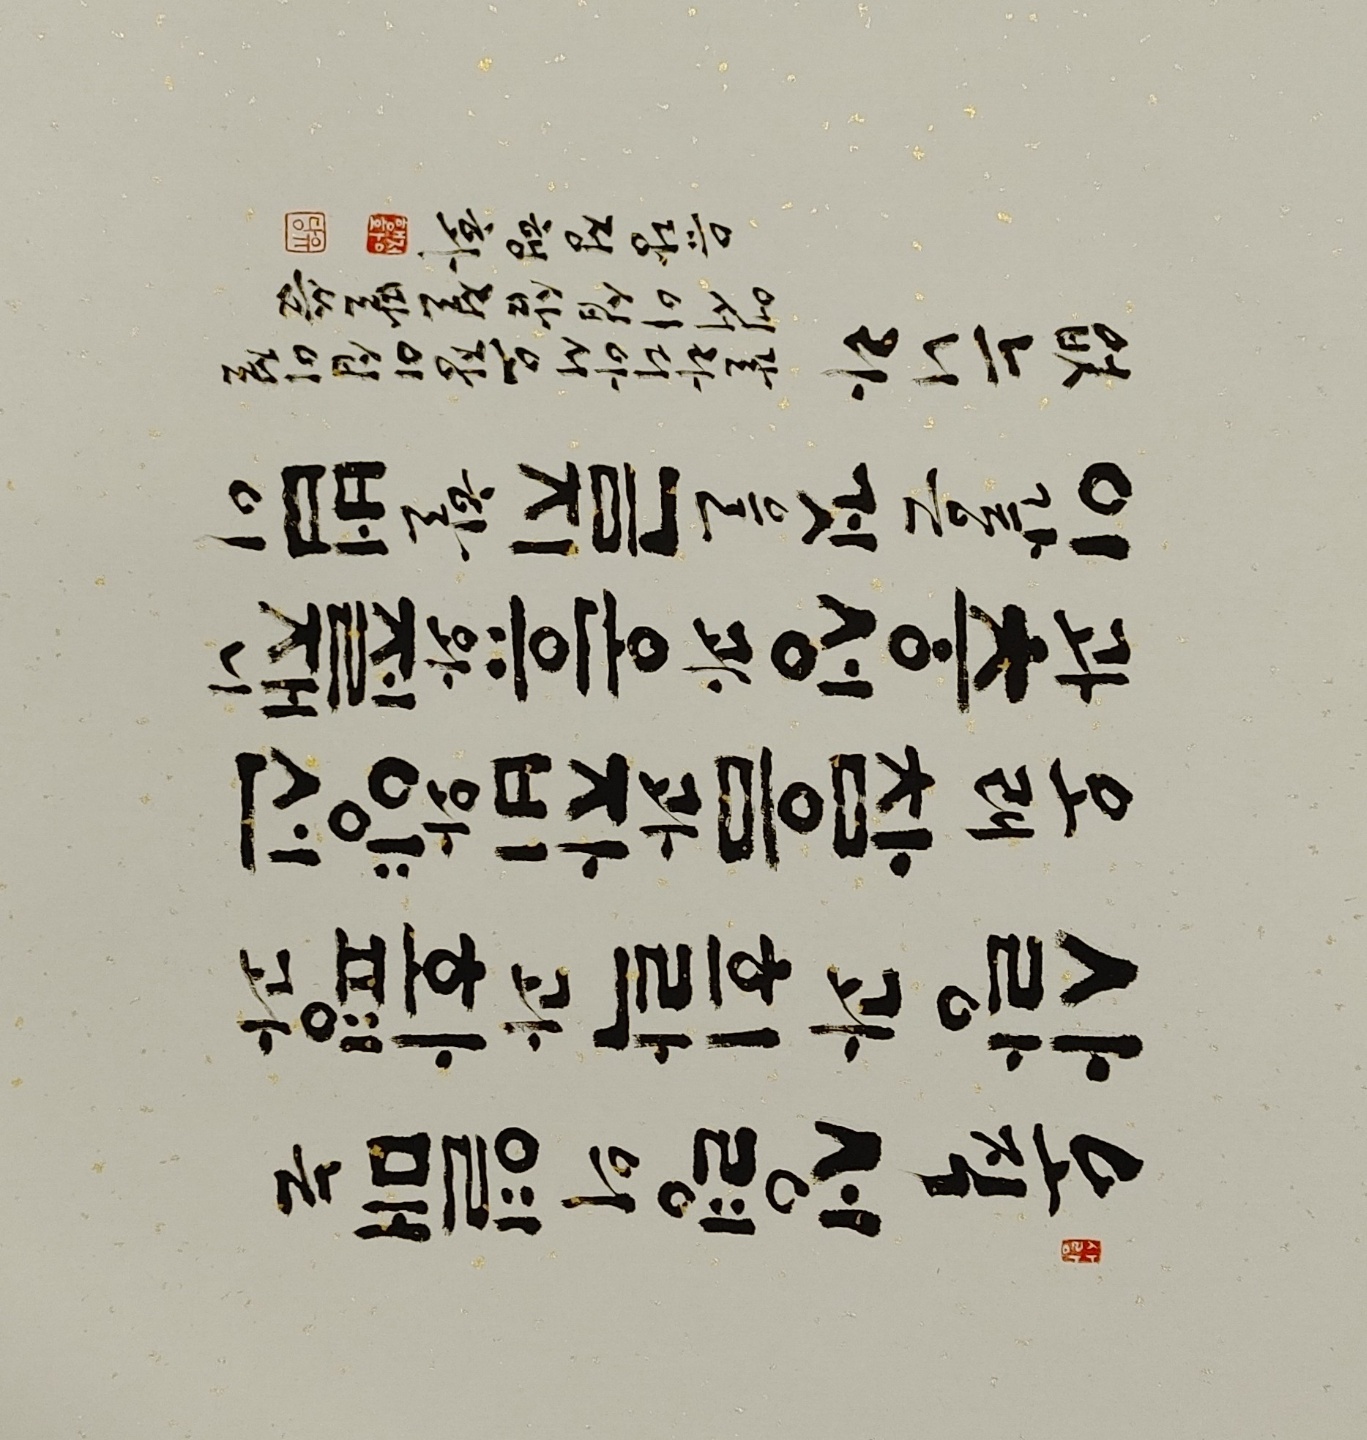 사랑
오직 성령의 열매는
사랑과 희락과 화평과
오래 참음과 자비와 양선
과 충성과 온유와 절제니
이같은 것을 금지할 법이
없느니라
갈라디아서 오장 이십이절
에서 이십삼절 말씀
유당 정행화
정행화
유당